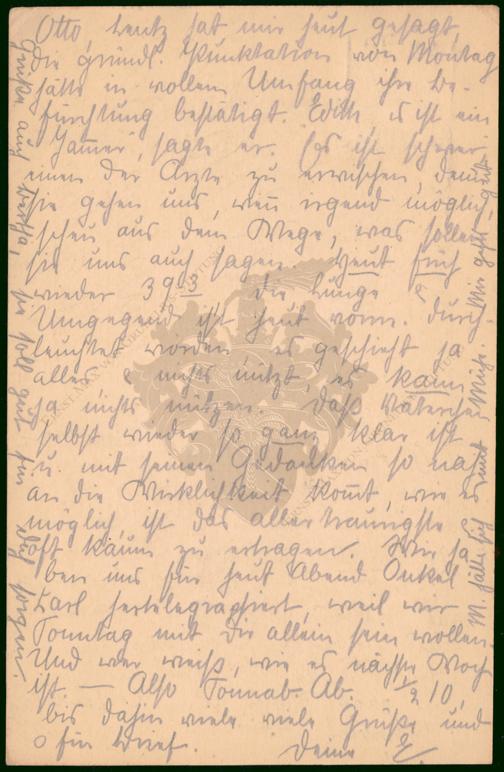 Otto, Lentz hat mir heut gesagt,
die gründl. Punktation von Montag
hätte in vollem Umfang ihre Be-
fürchtung bestätigt. Edith es ist ein
Jammer, sagte er. Es ist schwer
einen der Ärzte zu erwischen, denn
sie gehen uns, wenn irgend möglich
scheu aus dem Wege, was sollen
sie uns auch sagen. Heut früh
wieder 39 3 die Lunge
Umgegend ist heut vorm. durch-
leuchtet worden es geschieht ja
alles nichts nützt es kann
ja nichts nützen. Daß Väterchen
selbst wieder so ganz klar ist
u. mit seinen Gedanken so nah
an die Wirklichkeit kommt, wie es
möglich, ist das allertraurigste
oft kaum zu ertragen. Wir ha-
ben uns für heut Abend Onkel
Karl hertelegraphiert, weil wir
Sonntag mit Dir allein sein wollen.
Und wer weiß, wie es nächste Woch
ist. — Also Sonnab. Ab. ½ 10,
bis dahin viele viele Grüße und
o ein Brief. Deine E.
Grüße auch Hertha, sie soll gut für Dich sorgen.
M. hält sich Mir geht gut